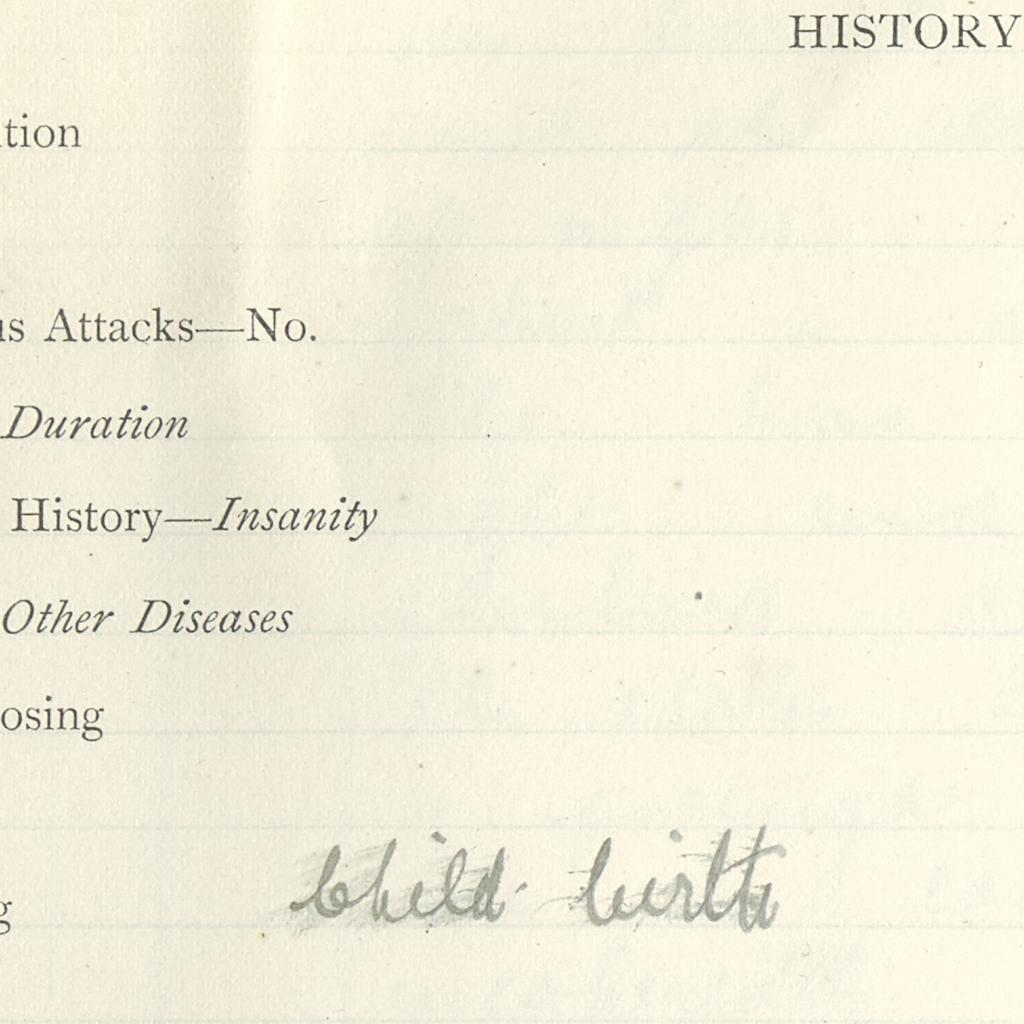 HISTORY
tion
us Attacks—No.
Duration
History—Insanity
Other Diseases
osing
g Child birth